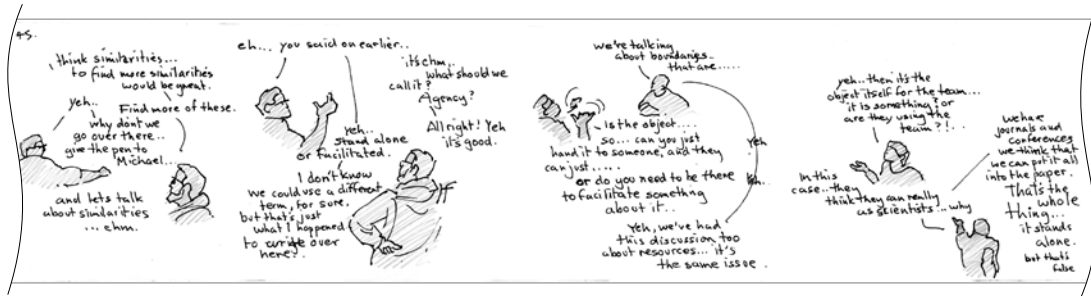 4S.
think similarities...
to find more similarities
would be great.
yeh..
Find more of these.
why dont we
go over there...
give the pen to
Michael...
and lets talk
about similarities
... ehm.
eh... you said on earlier..
Yeh..
Stand alone
or facilitated.
it's ehm..
what should we
call it?
Agency?
All right! Yeh
it's good.
I don't know
we could use a different
term, for sure.
but that's just
what I happened
to write over
here?
we're talking
about boundaries..
that are.....
Is the object....
so... can you just
hand it to someone, and they
can just.....
or do you need to be there
to facilitate something
about it..
Yeh
Yeh..
Yeh, we've had
this discussion too
about resources... it's
the same issue.
yeh.. then it's the
object itself for the team...
it is something? or
are they using the
team?!..
In this
case.. they
think they can really
as scientists... why
We have
journals and
conferences
we think that
we can put it all
into the paper.
That's the
whole
thing...
it stands
alone.
but that's
false